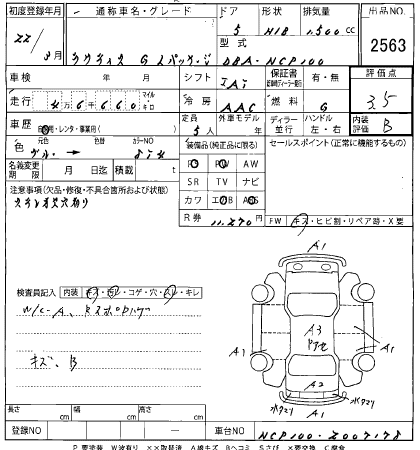 初度登録年月 通称車名・グレード ドア 形状 排気量 出品NO.
22/ 3月 ラクティス G Lパッケージ 5 H/B 1,500 cc 2563
型式 DBA-NCP100
車検 年 月 シフト IAT 保証書 有・無 評価点
走行 4万6,660 マイル キロ 冷房 AAC 燃料 G 3.5
車歴 自家用・レンタ・事業用( ) 定員 5人 外車モデル 年 ディーラー 並行 ハンドル 左・右 内装評価 B
色 元色 色替 カラーNO
装備品(純正品に限る) セールスポイント(正常に機能するもの)
名義変更期限 月 日迄 積載 t
PS PW AW
注意事項(欠品・修復・不具合箇所および状態)
SR TV ナビ
カワ エアB ABS
R券 11,270円
FW キズ・ヒビ割・リペア跡・X要
検査員記入 内装 キズ・汚レ・コゲ・穴・スレ・キレ
W/C-A、
キズ、B
A1
A3
A1
A1
A2
A1
長さ cm 幅 cm 高さ cm
登録NO 車台NO NCP100-2007178
P要塗装 W波有り ××取替済 A線キズ Bヘコミ Sさび X要交換 C腐食